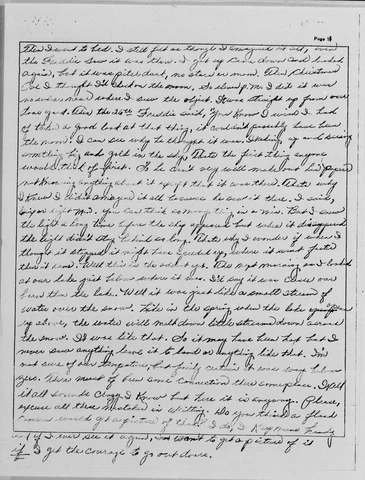 Page 1
Then I went to bed. I still felt as though I imagined it all, even
tho Freddie saw it was there. I got up came down and looked
again, but it was pitch dark, no stars or moon. Then Christmas
Eve I thought I'd check on the moon, So about p.m. I did it was
nowhere near where I saw the object. It was straight up from our
back yard. Then the 26th Freddie said, You Know I wish I had
of taken a good look at that thing, it couldn't possibly have been
the moon. I can see why he thought it was. Waking up and seeing
something big and gold in the sky. That's the first thing anyone
would think of first. So he isn't very well made out his paper
not knowing anything about it except that it was there. That's why
I know I didn't imagine it all because he saw it there. I said,
You can think so many things in a min. But I saw
the light a long time before the ship appeared but when it disappeared
the light didn't stay behind so long. That's why I wonder if when I
thought it stopped it might have speeded up, where it went faster
than it came. Well this is the end of it. The next morning we looked
at our lake just below where it was. I'd say it was closer our
barn than the lake. Well it was just like a small stream of
water over the snow. Like in the spring when the lake
up above, the water will melt down little streams down across
the snow. It was like that. So it may have been hot but I
never saw anything leave it to land or anything like that. I'm
not sure of our temperature, but fairly certain it was way below
zero. There must of been some connection there someplace. I
it all sounds crazy I know but here it is anyway. Please,
excuse all these mistakes in writing. Do you think a flash
camera would get a picture of that? I do, I Keep mine handy
so if I ever see it again, I want to get a picture of it
if I get the courage to go out doors.